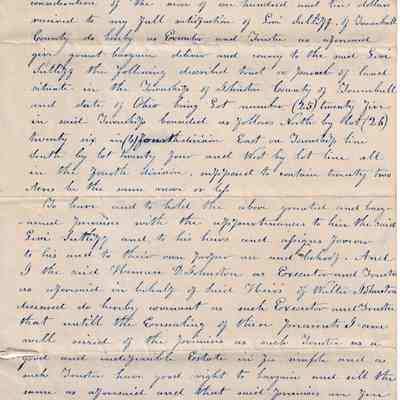 consideration of the sum of one hundred and ten dollars
received to my full satisfaction of Levi Sutliff of Trumbull
County do hereby as Executor and Trustee as aforesaid
give grant bargain deliver and convey to the said Levi
Sutliff the following described tract or parcel of land
situate in the Township of Johnston County of Trumbull
and state of Ohio being Lot number (25) twenty five
in said Township bounded as follows North by Lot (26)
twenty six in (4) fourth division East on Township line
South by lot twenty four and West by lot line all
in the fourth division, supposed to contain twenty two
Acres be the same more or less
To have and to hold the above granted and barg-
-ained premises with the appurtenances to him the said
Levi Sutliff and to his heirs and assigns forever
to his and to their own proper use and behoof. And
I the said Herman D. Johnston as Executor and Trustee
as aforesaid in behalf of said Heirs of Walter Johnston
deceased do hereby covenant as such Executor and Trustee
that untill the Ensealing of these presents I am
well seized of the premises as such Trustee as a
good and indefeasible Estate in fee simple and as
such Trustee have good right to bargain and sell the
same as aforesaid and that said premises are free